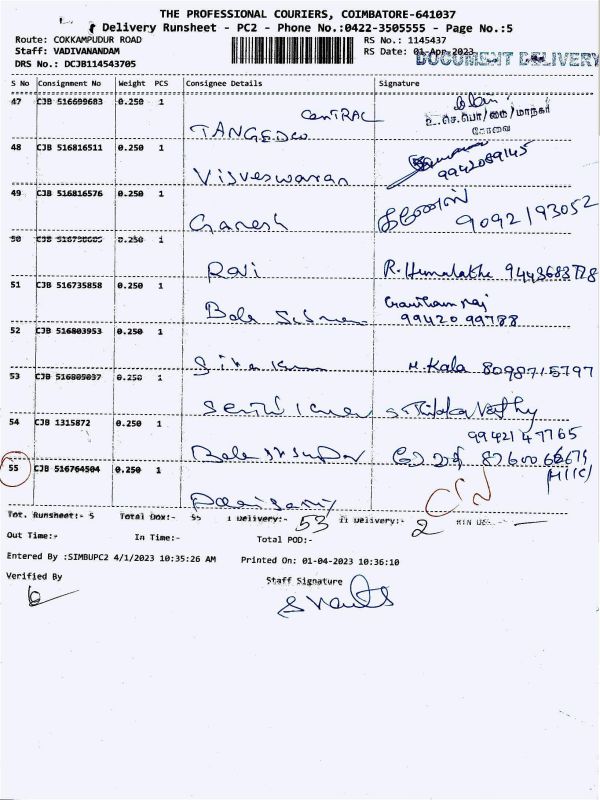 THE PROFESSIONAL COURIERS, COIMBATORE-641037
Delivery Runsheet - PC2 - Phone No.:0422-3505555 - Page No.:5
Route: COKKAMPUDUR ROAD RS No.: 1145437
Staff: VADIVANANDAM RS Date: 01-Apr-2023
DOCUMENT DELIVERY
DRS No.: DCJB114543705
S No Consignment No Weight PCS Consignee Details Signature
47 CJB 516699683 0.250 1
CENTRAL
TANGEDCO
உ.செ.பொ/மை/மாநகர்
கோவை
48 CJB 516816511 0.250 1
Visveswaran 9942089145
49 CJB 516816576 0.250 1
Ganesh கணேஸ் 9092193052
50 CJB 0.250 1
Ravi R. Hemalatha
51 CJB 516735858 0.250 1
Bala Gowtham raj
99420 99788
52 CJB 516803953 0.250 1
Siva Kumar M. Kala 8098715797
53 CJB 516805037 0.250 1
Senthil Kumar
54 CJB 1315872 0.250 1
9942147765
55 CJB 516764504 0.250 1
Palaisamy
Tot. Runsheet:- 5 Total Dox:- 55 I Delivery:- 53 II Delivery:- 2
Out Time:- In Time:- Total POD:-
Entered By :SIMBUPC2 4/1/2023 10:35:26 AM Printed On: 01-04-2023 10:36:10
Verified By Staff Signature